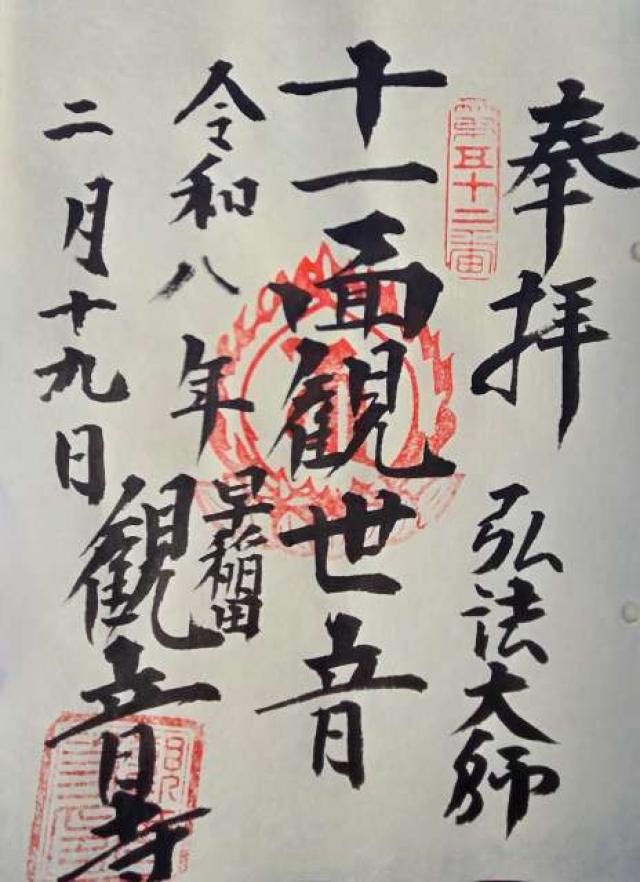 奉拝
弘法大師
第五十二番
十一面観世音
令和八年
早稲田
二月十九日
観音寺